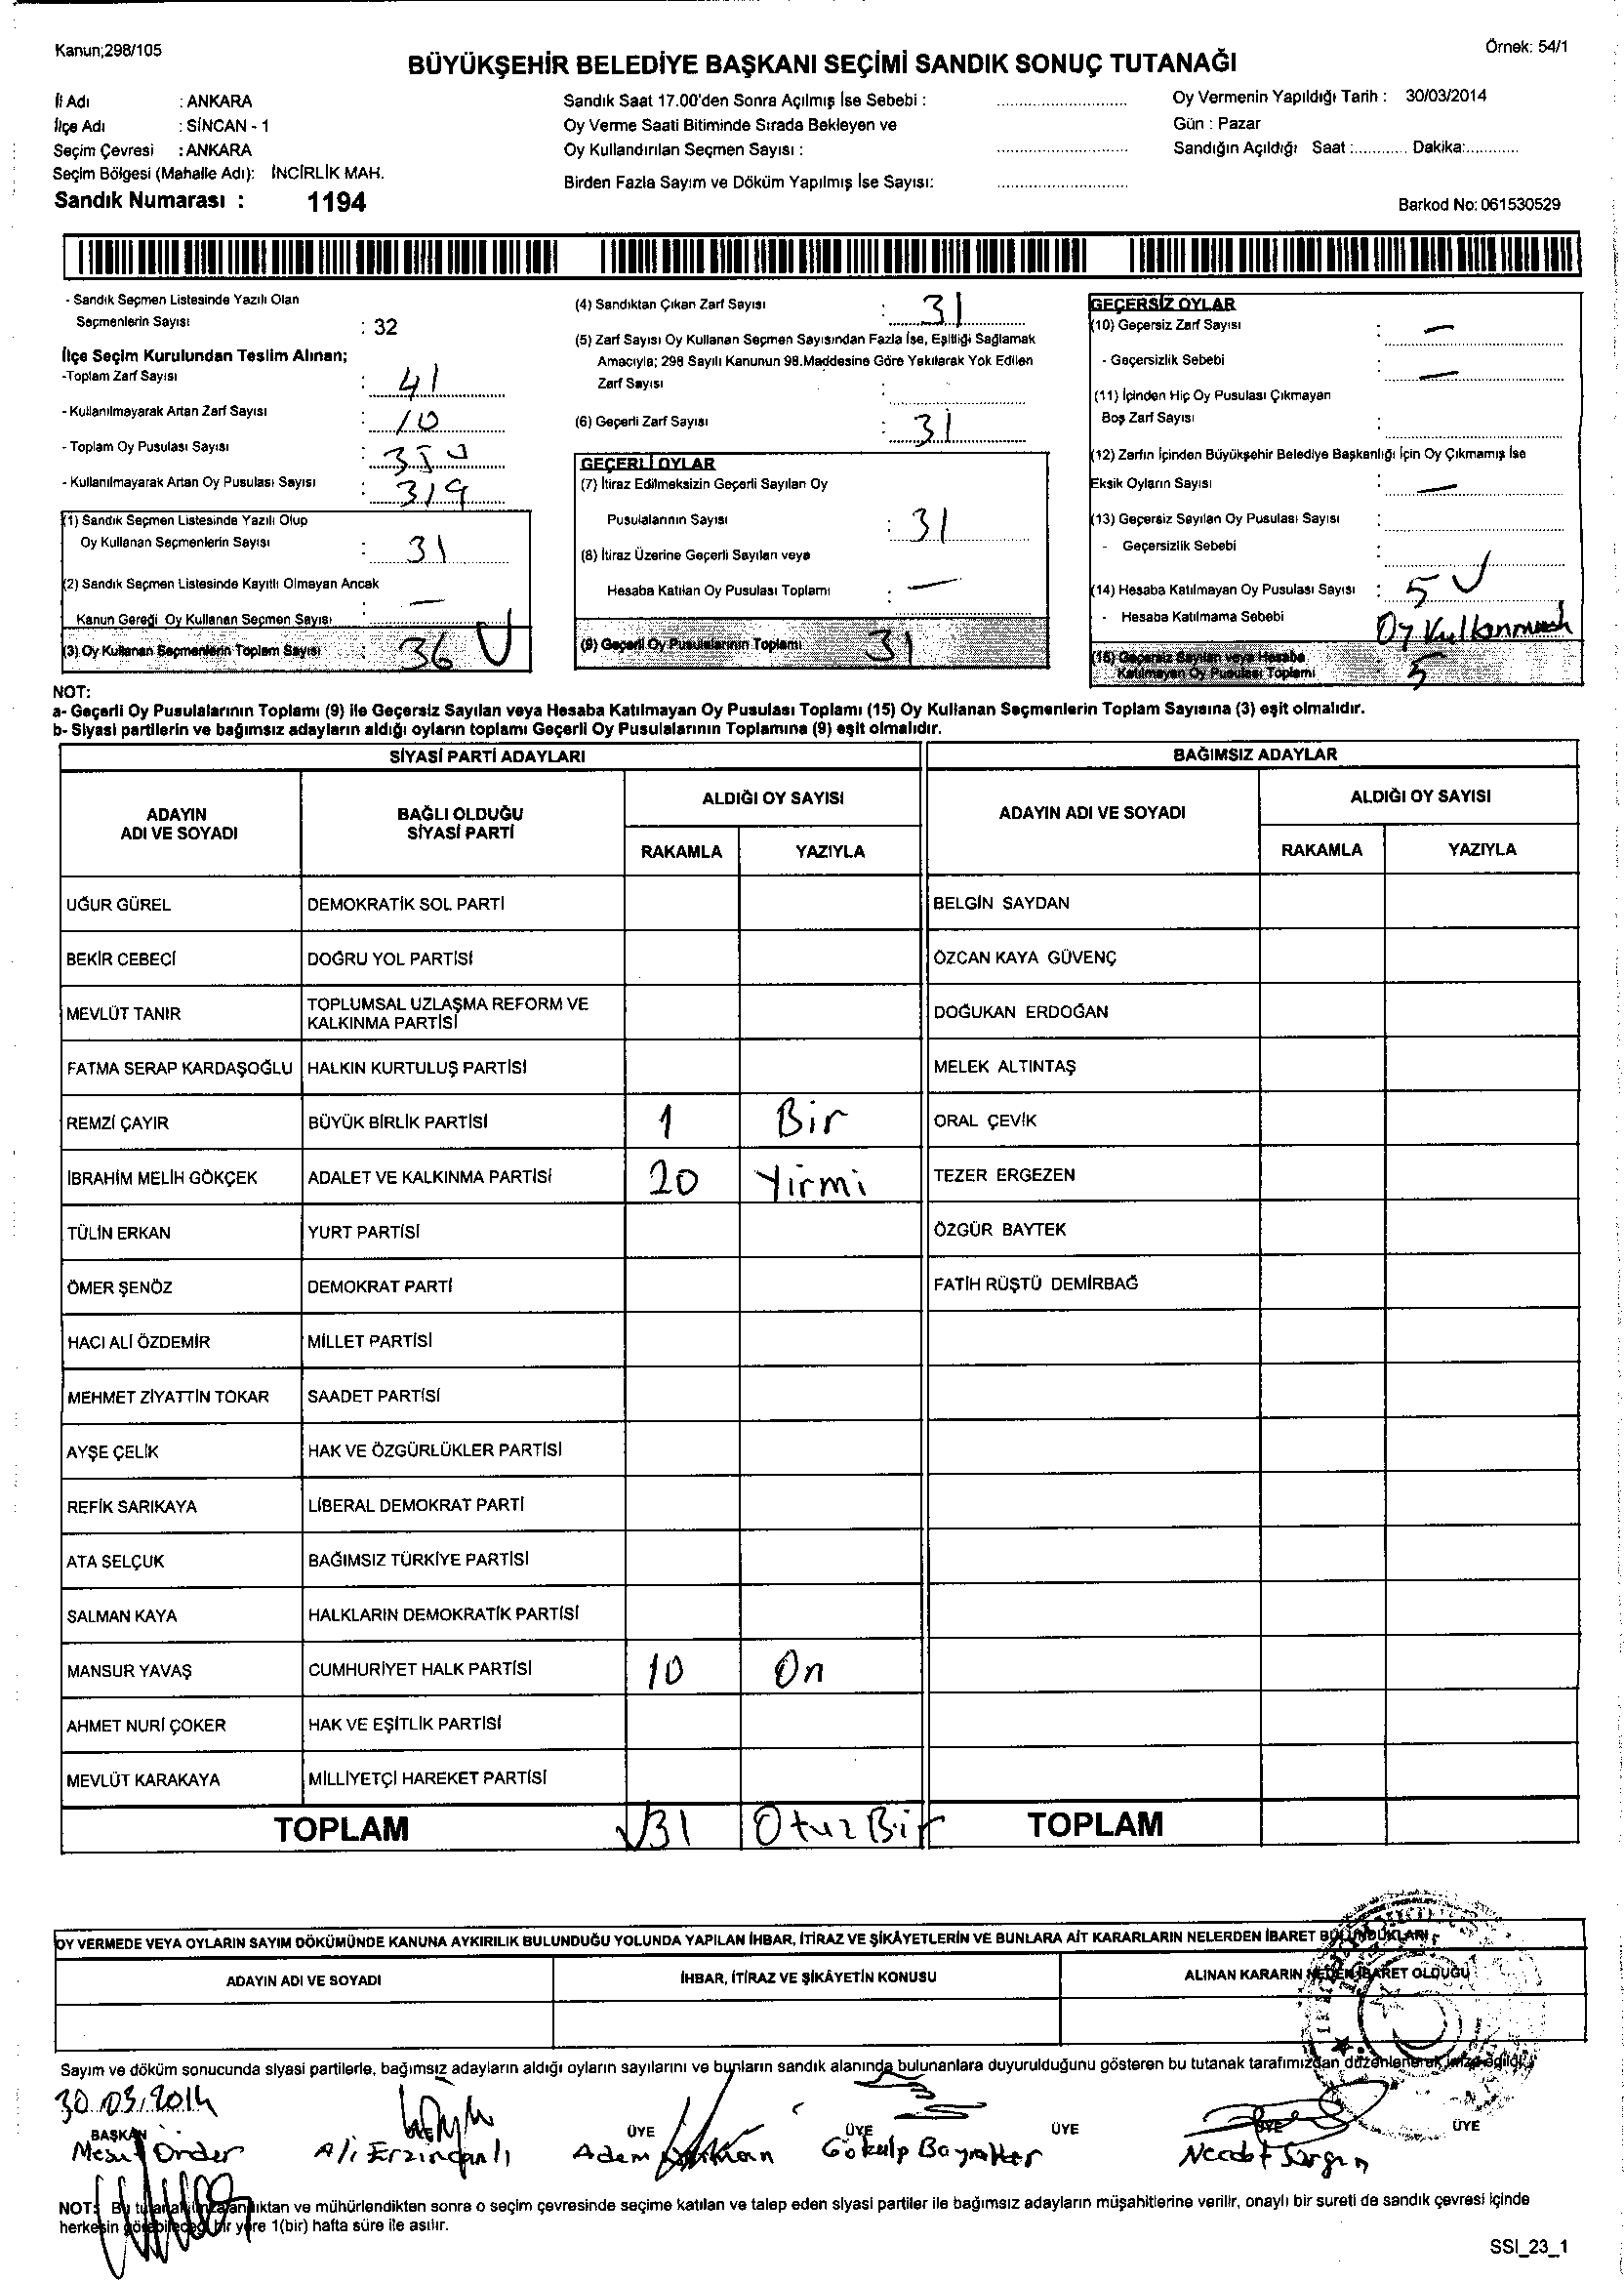 Kanun;298/105
Örnek: 54/1
BÜYÜKŞEHİR BELEDİYE BAŞKANI SEÇİMİ SANDIK SONUÇ TUTANAĞI
İl Adı : ANKARA
İlçe Adı : SİNCAN - 1
Seçim Çevresi : ANKARA
Seçim Bölgesi (Mahalle Adı): İNCİRLİK MAH.
Sandık Numarası : 1194
Sandık Saat 17.00'den Sonra Açılmış İse Sebebi :
Oy Verme Saati Bitiminde Sırada Bekleyen ve
Oy Kullandırılan Seçmen Sayısı :
Birden Fazla Sayım ve Döküm Yapılmış İse Sayısı:
Oy Vermenin Yapıldığı Tarih : 30/03/2014
Gün : Pazar
Sandığın Açıldığı Saat :............ Dakika:............
Barkod No: 061530529
- Sandık Seçmen Listesinde Yazılı Olan
Seçmenlerin Sayısı : 32
İlçe Seçim Kurulundan Teslim Alınan;
-Toplam Zarf Sayısı : 41
- Kullanılmayarak Artan Zarf Sayısı : 10
- Toplam Oy Pusulası Sayısı :
- Kullanılmayarak Artan Oy Pusulası Sayısı : 319
(1) Sandık Seçmen Listesinde Yazılı Olup
Oy Kullanan Seçmenlerin Sayısı : 31
(2) Sandık Seçmen Listesinde Kayıtlı Olmayan Ancak
Kanun Gereği Oy Kullanan Seçmen Sayısı : —
(3) Oy Kullanan Seçmenlerin Toplam Sayısı : 36
(4) Sandıktan Çıkan Zarf Sayısı : 31
(5) Zarf Sayısı Oy Kullanan Seçmen Sayısından Fazla İse, Eşitliği Sağlamak
Amacıyla; 298 Sayılı Kanunun 98.Maddesine Göre Yakılarak Yok Edilen
Zarf Sayısı :
(6) Geçerli Zarf Sayısı : 31
GEÇERLİ OYLAR
(7) İtiraz Edilmeksizin Geçerli Sayılan Oy
Pusulalarının Sayısı : 31
(8) İtiraz Üzerine Geçerli Sayılan veya
Hesaba Katılan Oy Pusulası Toplamı : —
(9) Geçerli Oy Pusulalarının Toplamı 31
GEÇERSİZ OYLAR
(10) Geçersiz Zarf Sayısı : —
- Geçersizlik Sebebi : —
(11) İçinden Hiç Oy Pusulası Çıkmayan
Boş Zarf Sayısı :
(12) Zarfın İçinden Büyükşehir Belediye Başkanlığı İçin Oy Çıkmamış İse
Eksik Oyların Sayısı : —
(13) Geçersiz Sayılan Oy Pusulası Sayısı :
- Geçersizlik Sebebi :
(14) Hesaba Katılmayan Oy Pusulası Sayısı : 5
- Hesaba Katılmama Sebebi Oy
(15) Geçersiz Sayılan veya Hesaba
Katılmayan Oy Pusulası Toplamı 5
NOT:
a- Geçerli Oy Pusulalarının Toplamı (9) ile Geçersiz Sayılan veya Hesaba Katılmayan Oy Pusulası Toplamı (15) Oy Kullanan Seçmenlerin Toplam Sayısına (3) eşit olmalıdır.
b- Siyasi partilerin ve bağımsız adayların aldığı oyların toplamı Geçerli Oy Pusulalarının Toplamına (9) eşit olmalıdır.
SİYASİ PARTİ ADAYLARI BAĞIMSIZ ADAYLAR
ADAYIN ADI VE SOYADI BAĞLI OLDUĞU SİYASİ PARTİ ALDIĞI OY SAYISI ADAYIN ADI VE SOYADI ALDIĞI OY SAYISI
RAKAMLA YAZIYLA RAKAMLA YAZIYLA
UĞUR GÜREL DEMOKRATİK SOL PARTİ BELGİN SAYDAN
BEKİR CEBECİ DOĞRU YOL PARTİSİ ÖZCAN KAYA GÜVENÇ
MEVLÜT TANIR TOPLUMSAL UZLAŞMA REFORM VE KALKINMA PARTİSİ DOĞUKAN ERDOĞAN
FATMA SERAP KARDAŞOĞLU HALKIN KURTULUŞ PARTİSİ MELEK ALTINTAŞ
REMZİ ÇAYIR BÜYÜK BİRLİK PARTİSİ 1 Bir ORAL ÇEVİK
İBRAHİM MELİH GÖKÇEK ADALET VE KALKINMA PARTİSİ 20 Yirmi TEZER ERGEZEN
TÜLİN ERKAN YURT PARTİSİ ÖZGÜR BAYTEK
ÖMER ŞENÖZ DEMOKRAT PARTİ FATİH RÜŞTÜ DEMİRBAĞ
HACI ALİ ÖZDEMİR MİLLET PARTİSİ
MEHMET ZİYATTİN TOKAR SAADET PARTİSİ
AYŞE ÇELİK HAK VE ÖZGÜRLÜKLER PARTİSİ
REFİK SARIKAYA LİBERAL DEMOKRAT PARTİ
ATA SELÇUK BAĞIMSIZ TÜRKİYE PARTİSİ
SALMAN KAYA HALKLARIN DEMOKRATİK PARTİSİ
MANSUR YAVAŞ CUMHURİYET HALK PARTİSİ 10 On
AHMET NURİ ÇOKER HAK VE EŞİTLİK PARTİSİ
MEVLÜT KARAKAYA MİLLİYETÇİ HAREKET PARTİSİ
TOPLAM 31 OtuzBir TOPLAM
OY VERMEDE VEYA OYLARIN SAYIM DÖKÜMÜNDE KANUNA AYKIRILIK BULUNDUĞU YOLUNDA YAPILAN İHBAR, İTİRAZ VE ŞİKÂYETLERİN VE BUNLARA AİT KARARLARIN NELERDEN İBARET BULUNDUKLARI
ADAYIN ADI VE SOYADI İHBAR, İTİRAZ VE ŞİKÂYETİN KONUSU ALINAN KARARIN NEDEN İBARET OLDUĞU
Sayım ve döküm sonucunda siyasi partilerle, bağımsız adayların aldığı oyların sayılarını ve bunların sandık alanında bulunanlara duyurulduğunu gösteren bu tutanak tarafımızdan düzenlenerek imza edildi.
30.03.2014
BAŞKAN ÜYE ÜYE ÜYE ÜYE ÜYE
Mesut Önder Ali Erzincanlı Adem Gökalp Bayraktar Necdet
NOT: Bu tutanak imzalandıktan ve mühürlendikten sonra o seçim çevresinde seçime katılan ve talep eden siyasi partiler ile bağımsız adayların müşahitlerine verilir, onaylı bir sureti de sandık çevresi içinde
herkesin görebileceği bir yere 1(bir) hafta süre ile asılır.
SSI_23_1